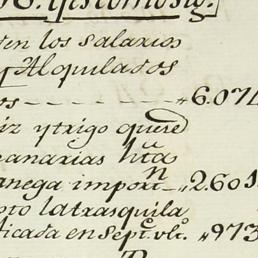 en los salarios
y Alquilados
os ---- "6.074
iz y trigo que se
panarias hta
anega import.n "2.60
oto la trasquila
ficada en Sept.e ult.o "973